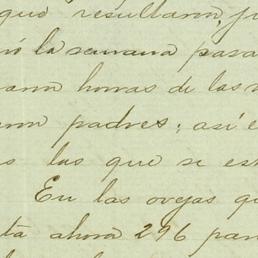 que resultaron, ju
ó la semana pasa
aron horras de las
aron padres; así e
s las que se est
En las ovejas q
ta ahora 296 par